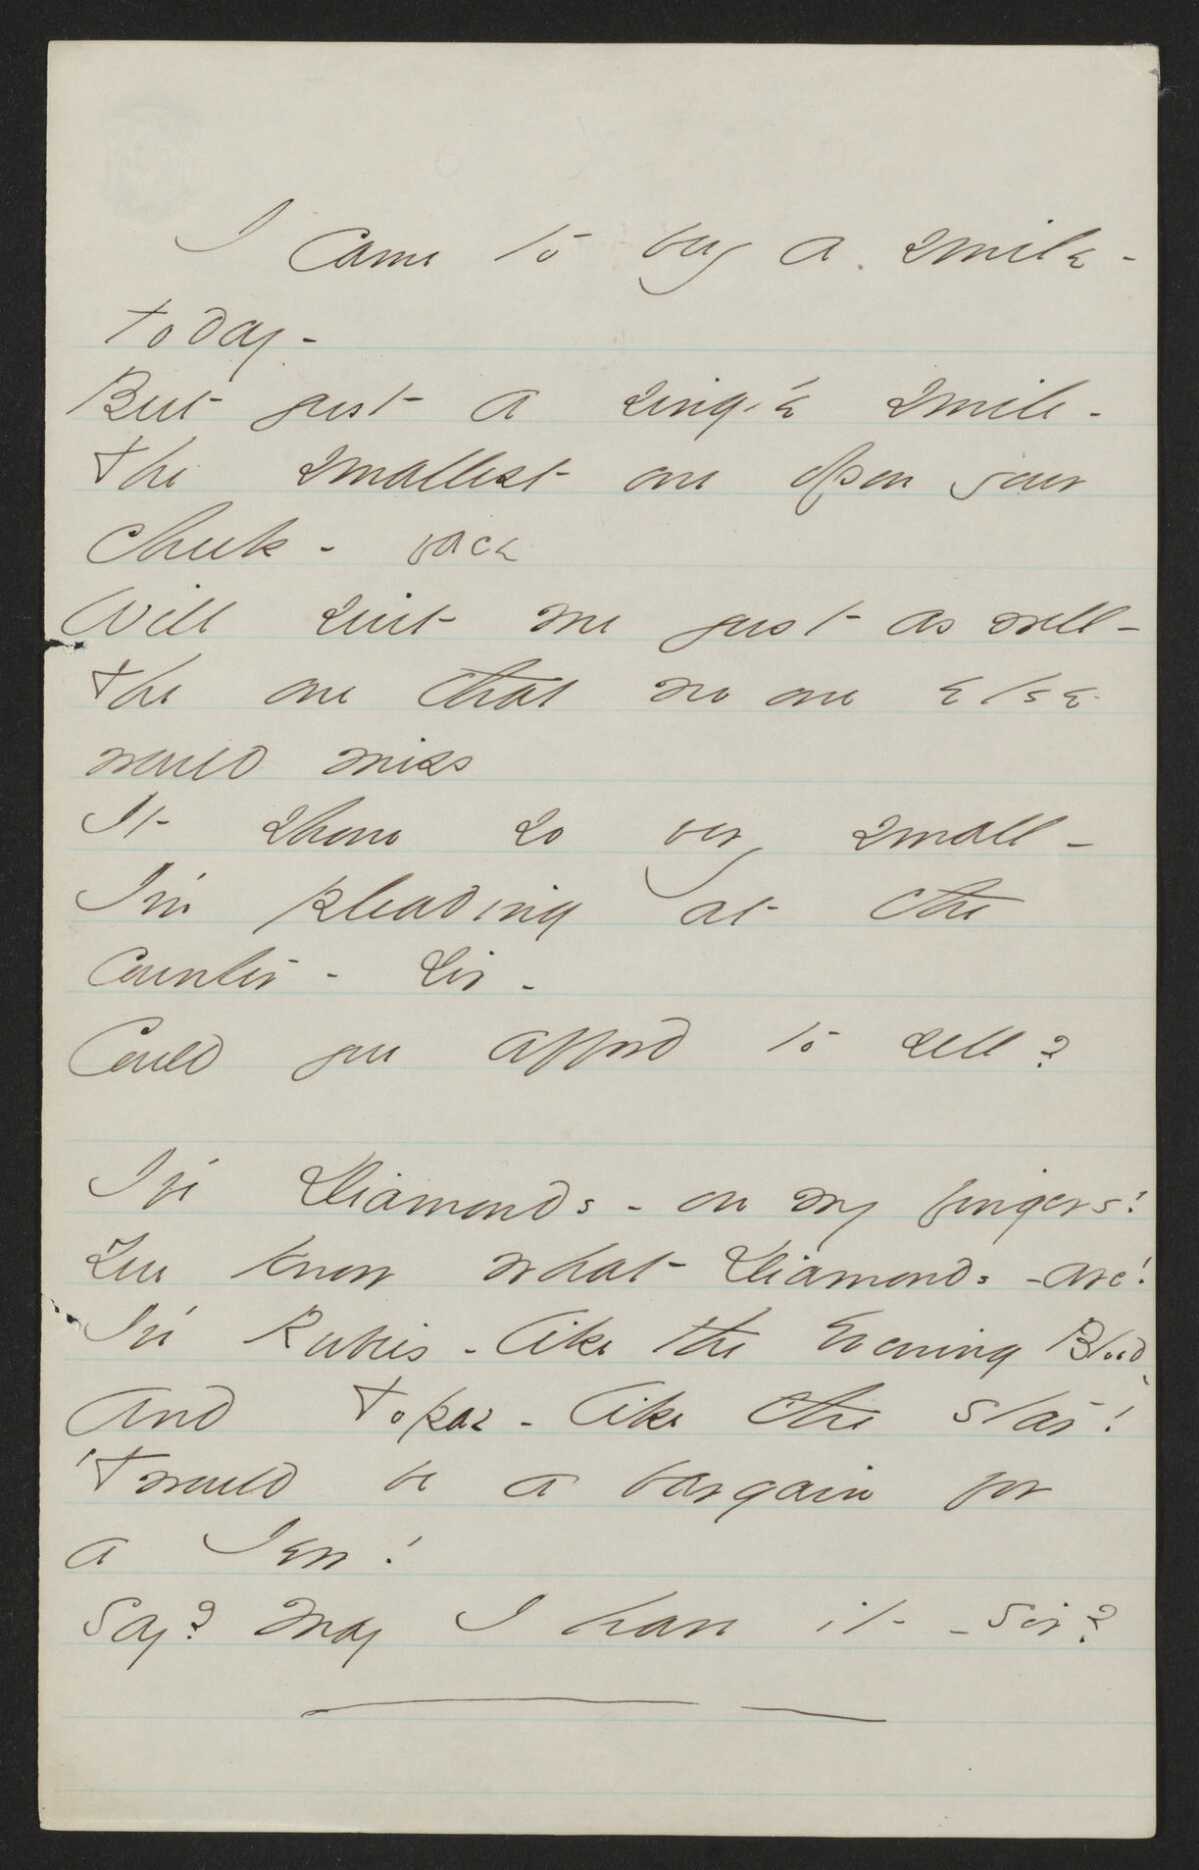 I came to buy a smile -
today -
But just a single smile -
The smallest one upon your
cheek - face
Will suit me just as well -
The one that no one else
would miss
It shone so very small -
I'm pleading at the
counter - sir -
Could you afford to sell?
I've Diamonds - on my fingers!
You know what Diamonds - are!
I've Rubies - like the Evening Blood
And Topaz - like the star!
'Twould be a bargain for
a Jew!
Say? May I have it - Sir?